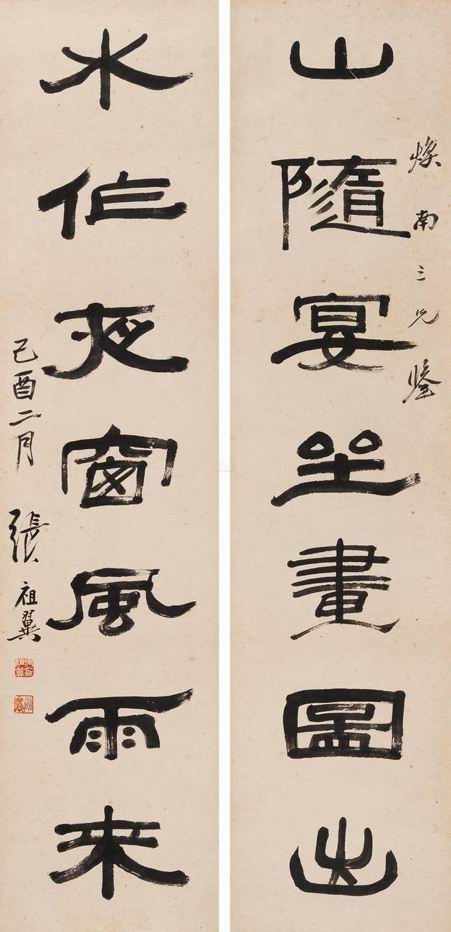 山隨宴坐畫圖出
燦南三兄鑒
水作夜窗風雨来
己酉二月
張祖翼